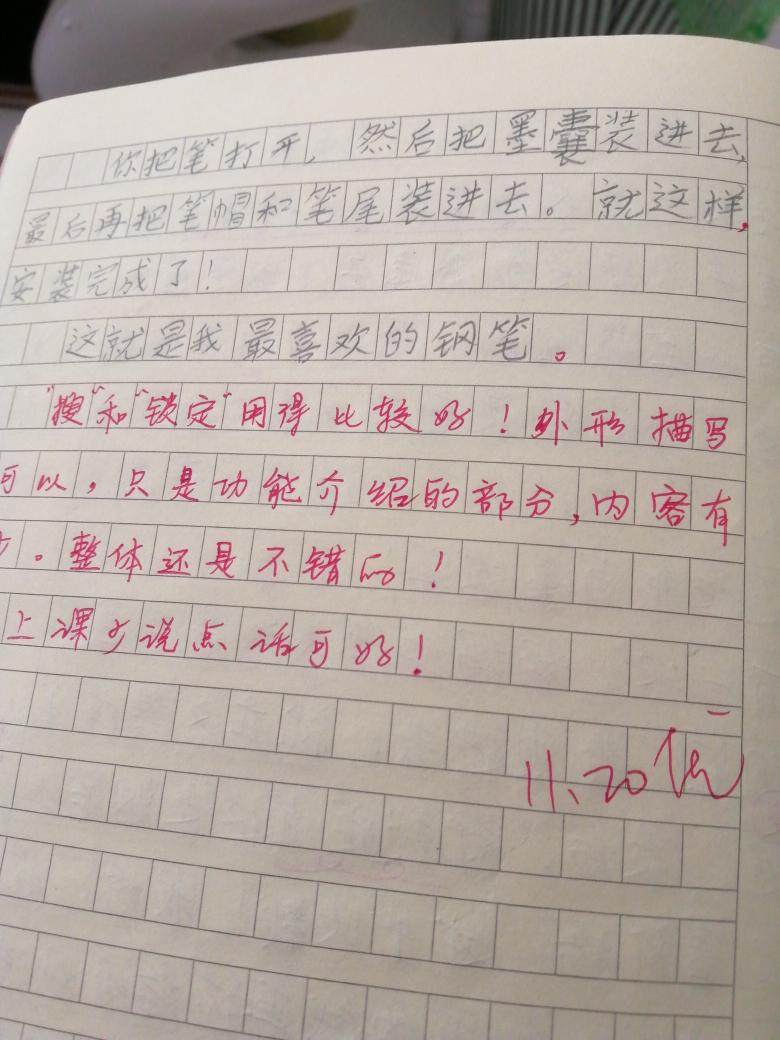 你把笔打开，然后把墨囊装进去，
最后再把笔帽和笔尾装进去。就这样，
安装完成了！
这就是我最喜欢的钢笔。
“搜”和“锁定”用得比较好！外形描写
可以，只是功能介绍的部分，内容有
少。整体还是不错的！
上课少说点话可好！
11.20 优